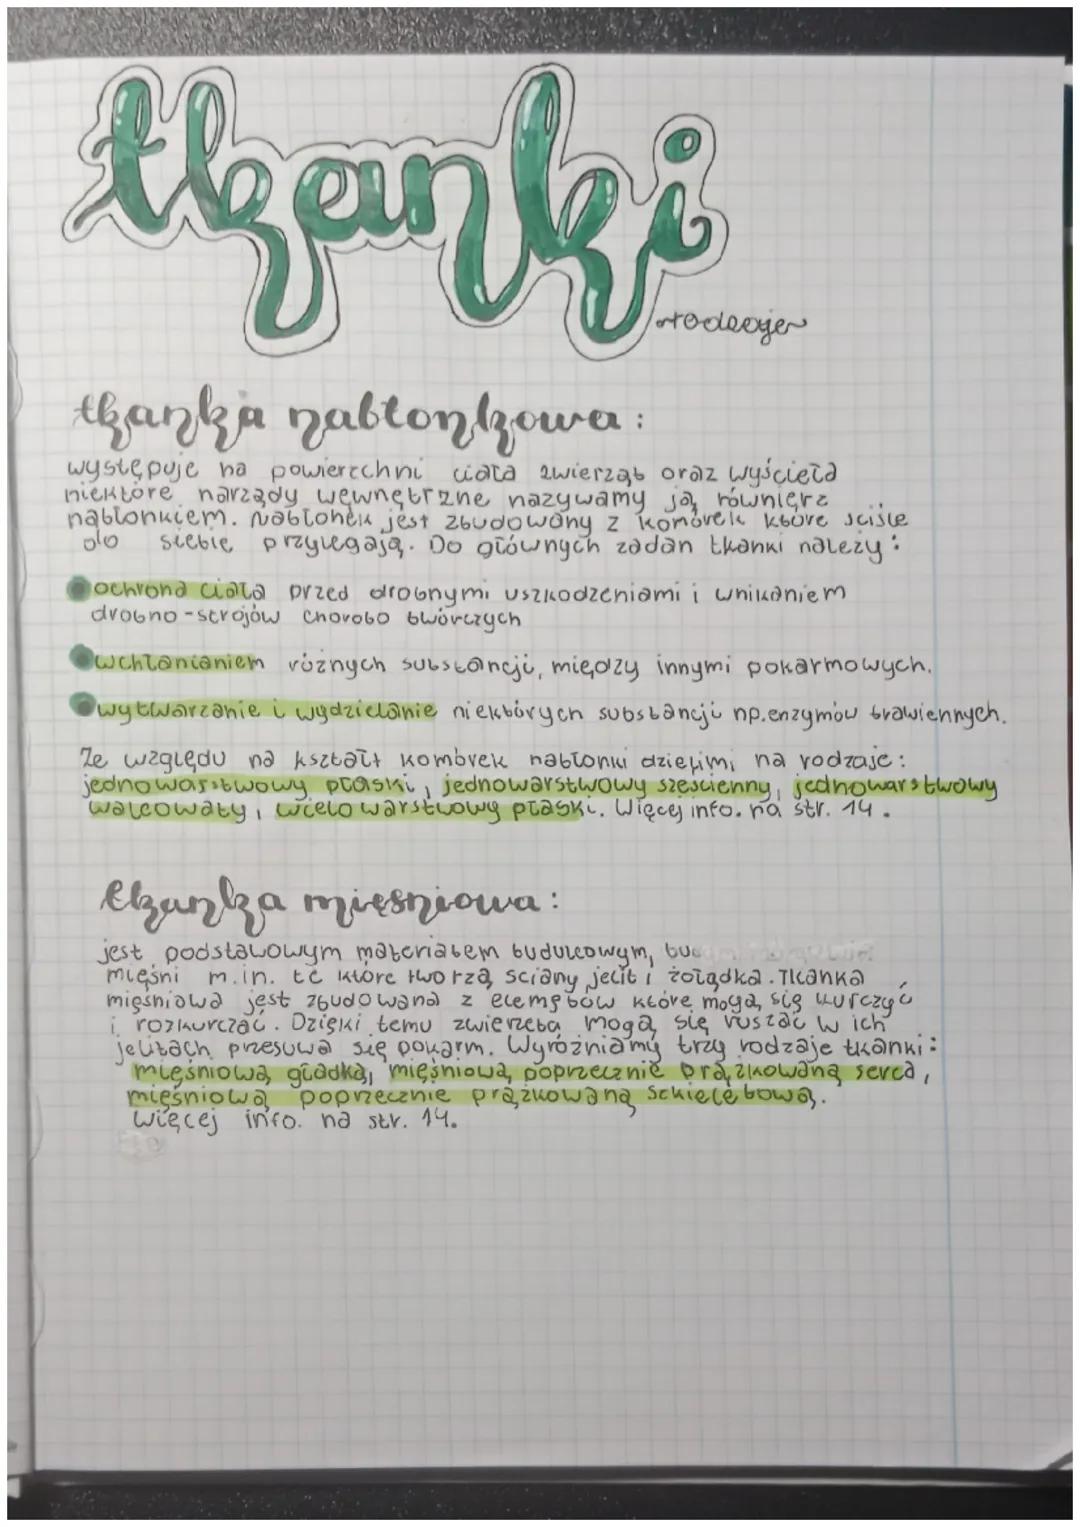 tkanki
~rodzaje~
tkanka nabłonkowa:
występuje na powierzchni ciała zwierząt oraz wyścieła
niektóre narządy wewnętrzne nazywamy ją równierz
nabłonkiem. Nabłonek jest zbudowany z komórek które ściśle
do siebie przylegają. Do głównych zadań tkanki należy:
ochrona ciała przed drobnymi uszkodzeniami i wnikaniem
drobno-strojów chorobo twórczych
wchłanianiem różnych substancji, między innymi pokarmowych.
wytwarzanie i wydzielanie niektórych substancji np.enzymów trawiennych.
Ze względu na kształt komórek nabłonki dzielimi na rodzaje:
jednowarstwowy płaski, jednowarstwowy sześcienny, jednowarstwowy
walcowaty, wielowarstwowy płaski. Więcej info. na str. 14.
tkanka mięśniowa:
jest podstawowym materiałem budulcowym,
mięśni m.in. te które tworzą ściany jelit i żołądka. Tkanka
mięśniowa jest zbudowana z elemętów które mogą się kurczyć
i rozkurczać. Dzięki temu zwierzęta mogą się ruszać w ich
jelitach przesuwa się pokarm. Wyróżniamy trzy rodzaje tkanki:
mięśniową gładką, mięśniową poprzecznie prążkowaną serca,
mięśniową poprzecznie prążkowaną szkieletową.
Więcej info. na str. 14.